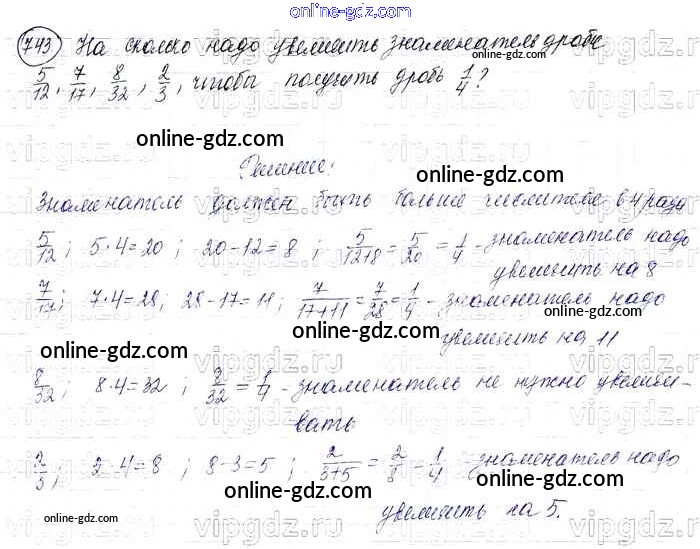 online-gdz.com
743 На сколько надо увеличить знаменатель дроби
5/12, 7/17, 8/32, 2/3, чтобы получить дробь 1/4?
online-gdz.com
online-gdz.com
Решение:
Знаменатель должен быть больше числителя в 4 раза
online-gdz.com
5/12; 5·4=20; 20-12=8; 5/12+8=5/20=1/4 - знаменатель надо
увеличить на 8
7/17; 7·4=28; 28-17=11; 7/17+11=7/28=1/4 - знаменатель надо
online-gdz.com
online-gdz.com
увеличить на 11
8/32; 8·4=32; 8/32=1/4 - знаменатель не нужно увеличи-
вать
online-gdz.com
2/3; 2·4=8; 8-3=5; 2/3+5=2/8=1/4 - знаменатель надо
online-gdz.com
увеличить на 5.
online-gdz.com
online-gdz.com